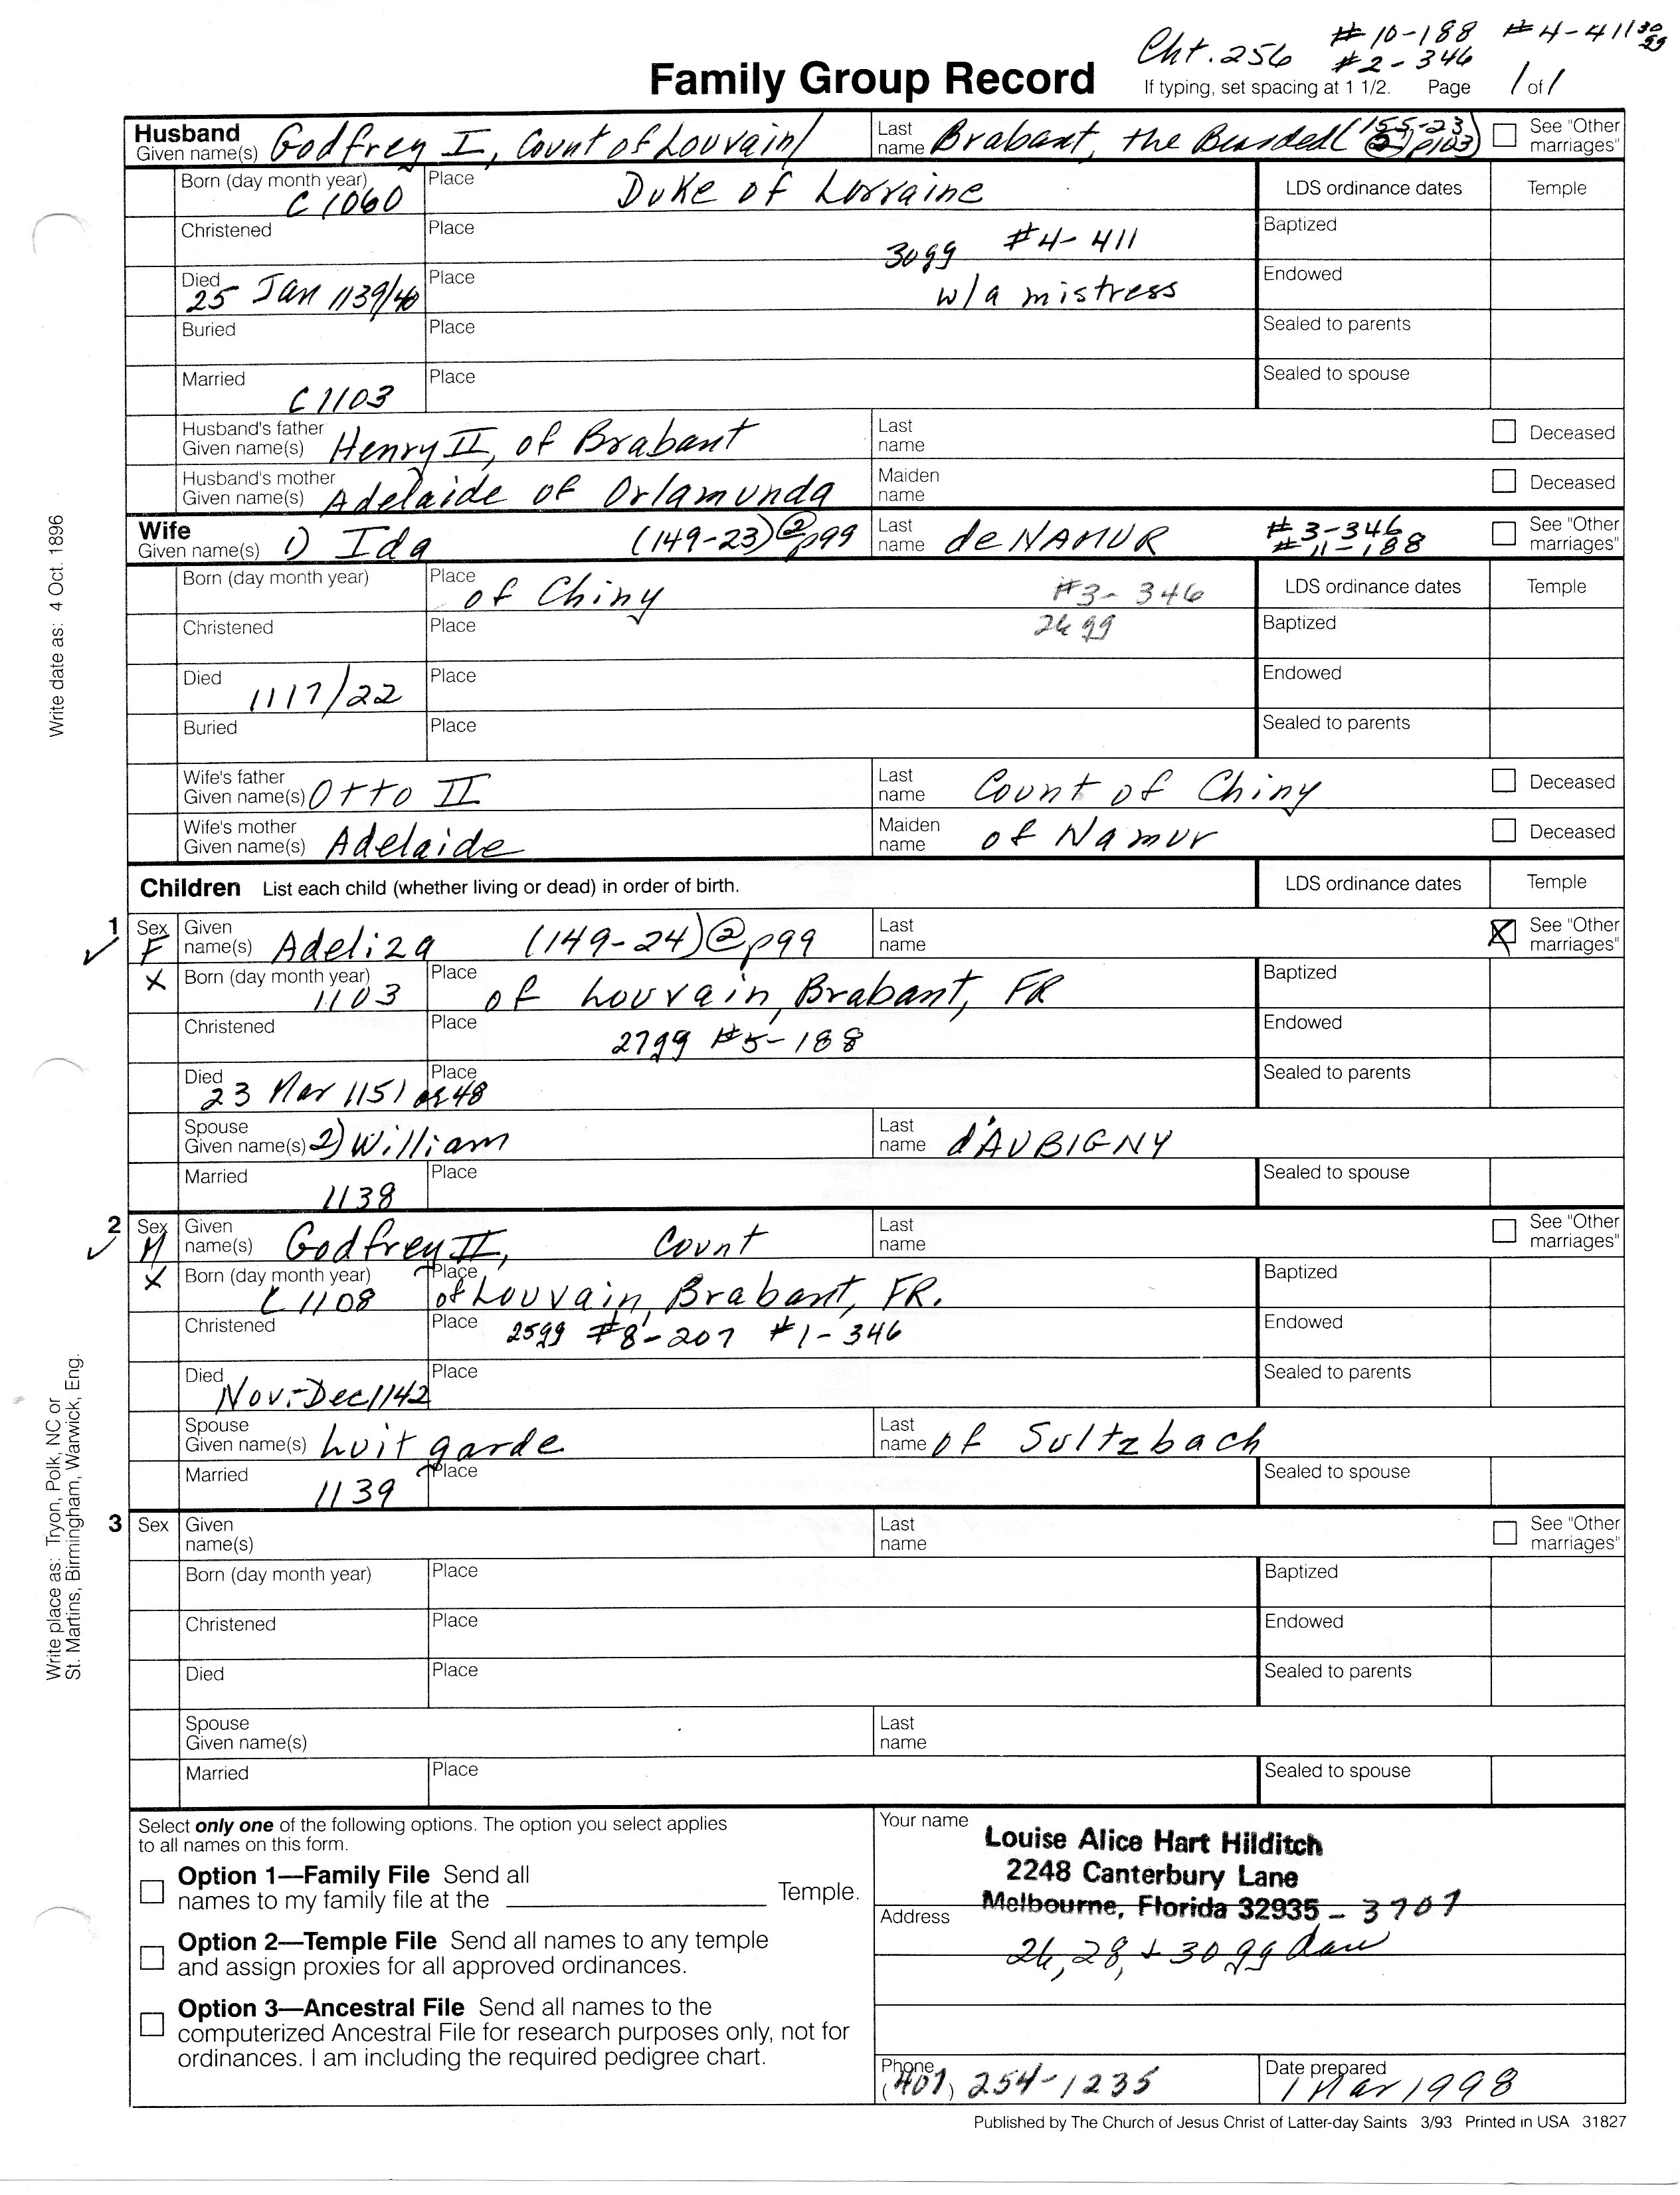 Cht. 256 #10-188 #4-411 30gg
#2-346
Family Group Record
If typing, set spacing at 1 1/2. Page 1 of 1
Husband
Given name(s) Godfrey I, Count of Louvain/ Last name Brabant, the Bearded (155-23) @ p103 See "Other marriages"
Born (day month year) C 1060 Place Duke of Lorraine LDS ordinance dates Temple
Christened Place 30gg #4-411 Baptized
Died 25 Jan 1139/40 Place w/a mistress Endowed
Buried Place Sealed to parents
Married C 1103 Place Sealed to spouse
Husband's father Given name(s) Henry II, of Brabant Last name Deceased
Husband's mother Given name(s) Adelaide of Orlamunda Maiden name Deceased
Wife
Given name(s) 1) Ida (149-23)@p99 Last name de NAMUR #3-346 #11-188 See "Other marriages"
Born (day month year) Place of Chiny #3-346 LDS ordinance dates Temple
Christened Place 26gg Baptized
Died 1117/22 Place Endowed
Buried Place Sealed to parents
Wife's father Given name(s) Otto II Last name Count of Chiny Deceased
Wife's mother Given name(s) Adelaide Maiden name of Namur Deceased
Children List each child (whether living or dead) in order of birth. LDS ordinance dates Temple
1 Sex F Given name(s) Adeliza (149-24)@p99 Last name See "Other marriages"
X Born (day month year) 1103 Place of Louvain, Brabant, FR Baptized
Christened Place 27gg #5-188 Endowed
Died 23 Mar 1151 or 48 Place Sealed to parents
Spouse Given name(s) 2) William Last name d'AUBIGNY
Married 1138 Place Sealed to spouse
2 Sex M Given name(s) Godfrey II, Count Last name See "Other marriages"
X Born (day month year) C 1108 Place of Louvain, Brabant, FR. Baptized
Christened Place 25gg #8-207 #1-346 Endowed
Died Nov.-Dec 1142 Place Sealed to parents
Spouse Given name(s) Luitgarde Last name of Sultzbach
Married 1139 Place Sealed to spouse
3 Sex Given name(s) Last name See "Other marriages"
Born (day month year) Place Baptized
Christened Place Endowed
Died Place Sealed to parents
Spouse Given name(s) Last name
Married Place Sealed to spouse
Select only one of the following options. The option you select applies
to all names on this form.
Option 1—Family File Send all
names to my family file at the Temple.
Option 2—Temple File Send all names to any temple
and assign proxies for all approved ordinances.
Option 3—Ancestral File Send all names to the
computerized Ancestral File for research purposes only, not for
ordinances. I am including the required pedigree chart.
Your name Louise Alice Hart Hilditch
2248 Canterbury Lane
Address Melbourne, Florida 32935 - 3707
26, 28, + 30 gg dau
Phone (407) 254-1235 Date prepared 1 Mar 1998
Published by The Church of Jesus Christ of Latter-day Saints 3/93 Printed in USA 31827
Write date as: 4 Oct. 1896
Write place as: Tryon, Polk, NC or
St. Martins, Birmingham, Warwick, Eng.